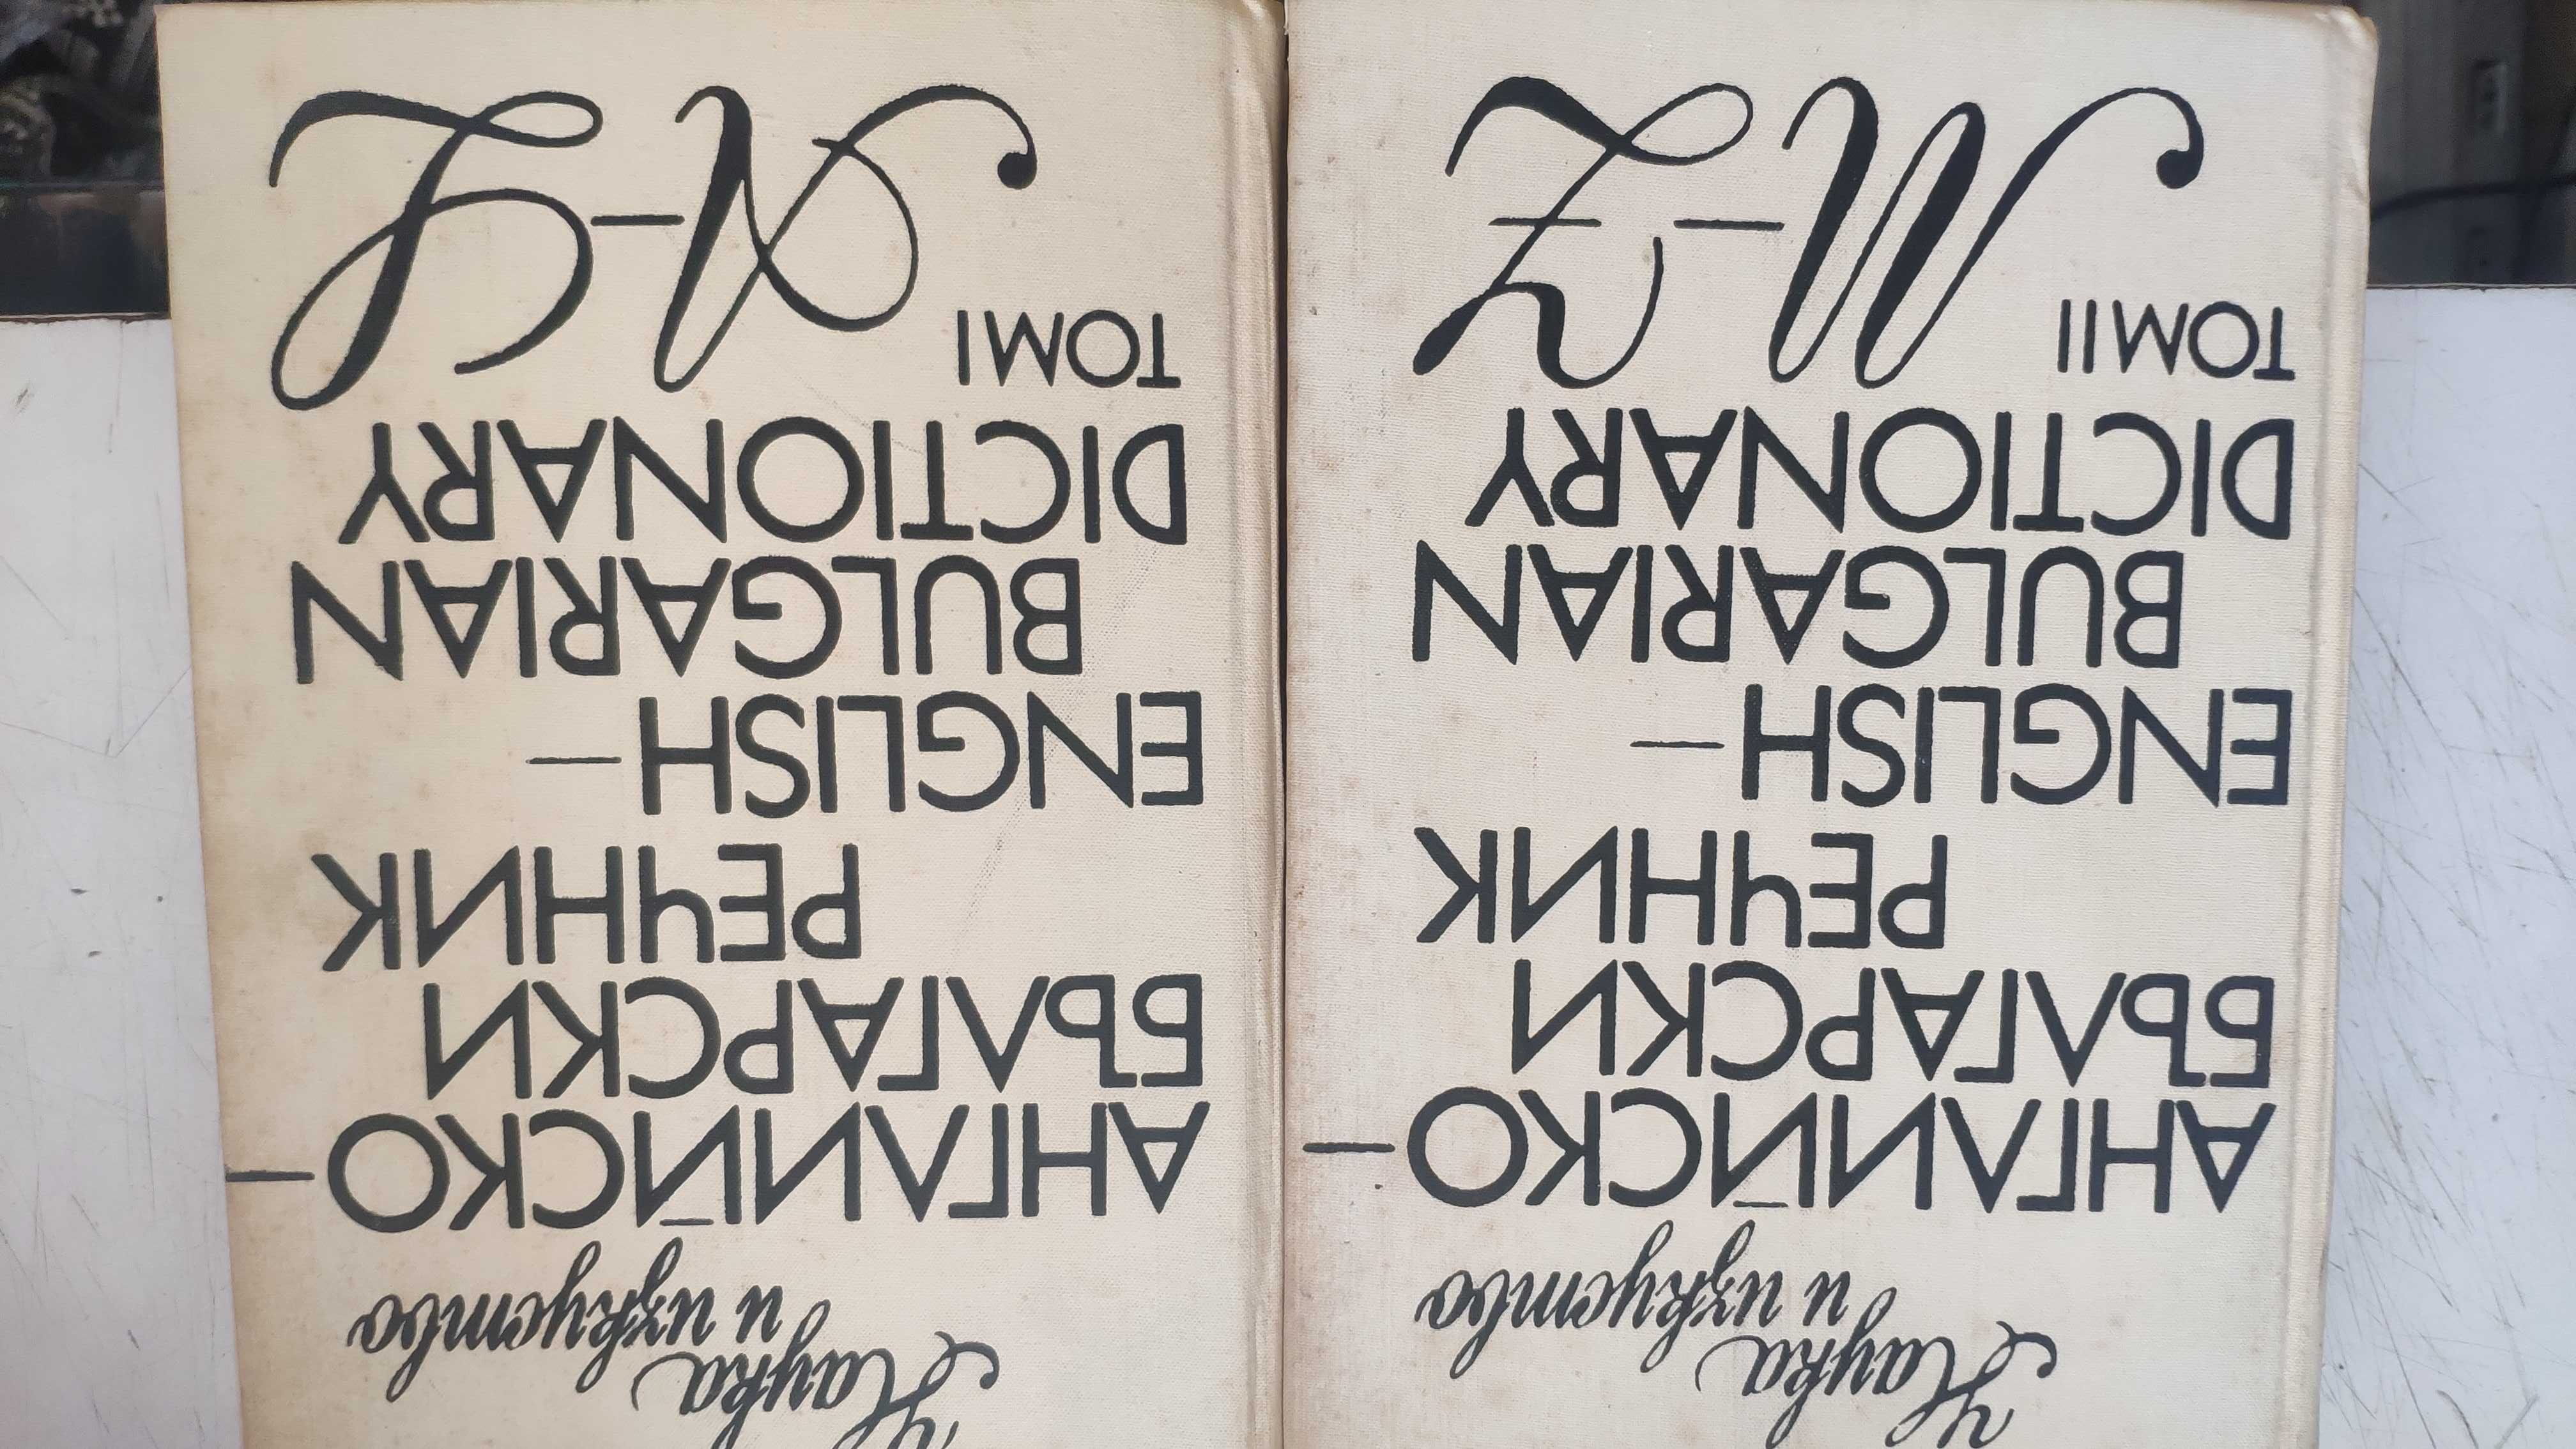 Наука
и изкуство
АНГЛИЙСКО–
БЪЛГАРСКИ
РЕЧНИК
ENGLISH–
BULGARIAN
DICTIONARY
ТОМ II M–Z
Наука
и изкуство
АНГЛИЙСКО–
БЪЛГАРСКИ
РЕЧНИК
ENGLISH–
BULGARIAN
DICTIONARY
ТОМ I A–L